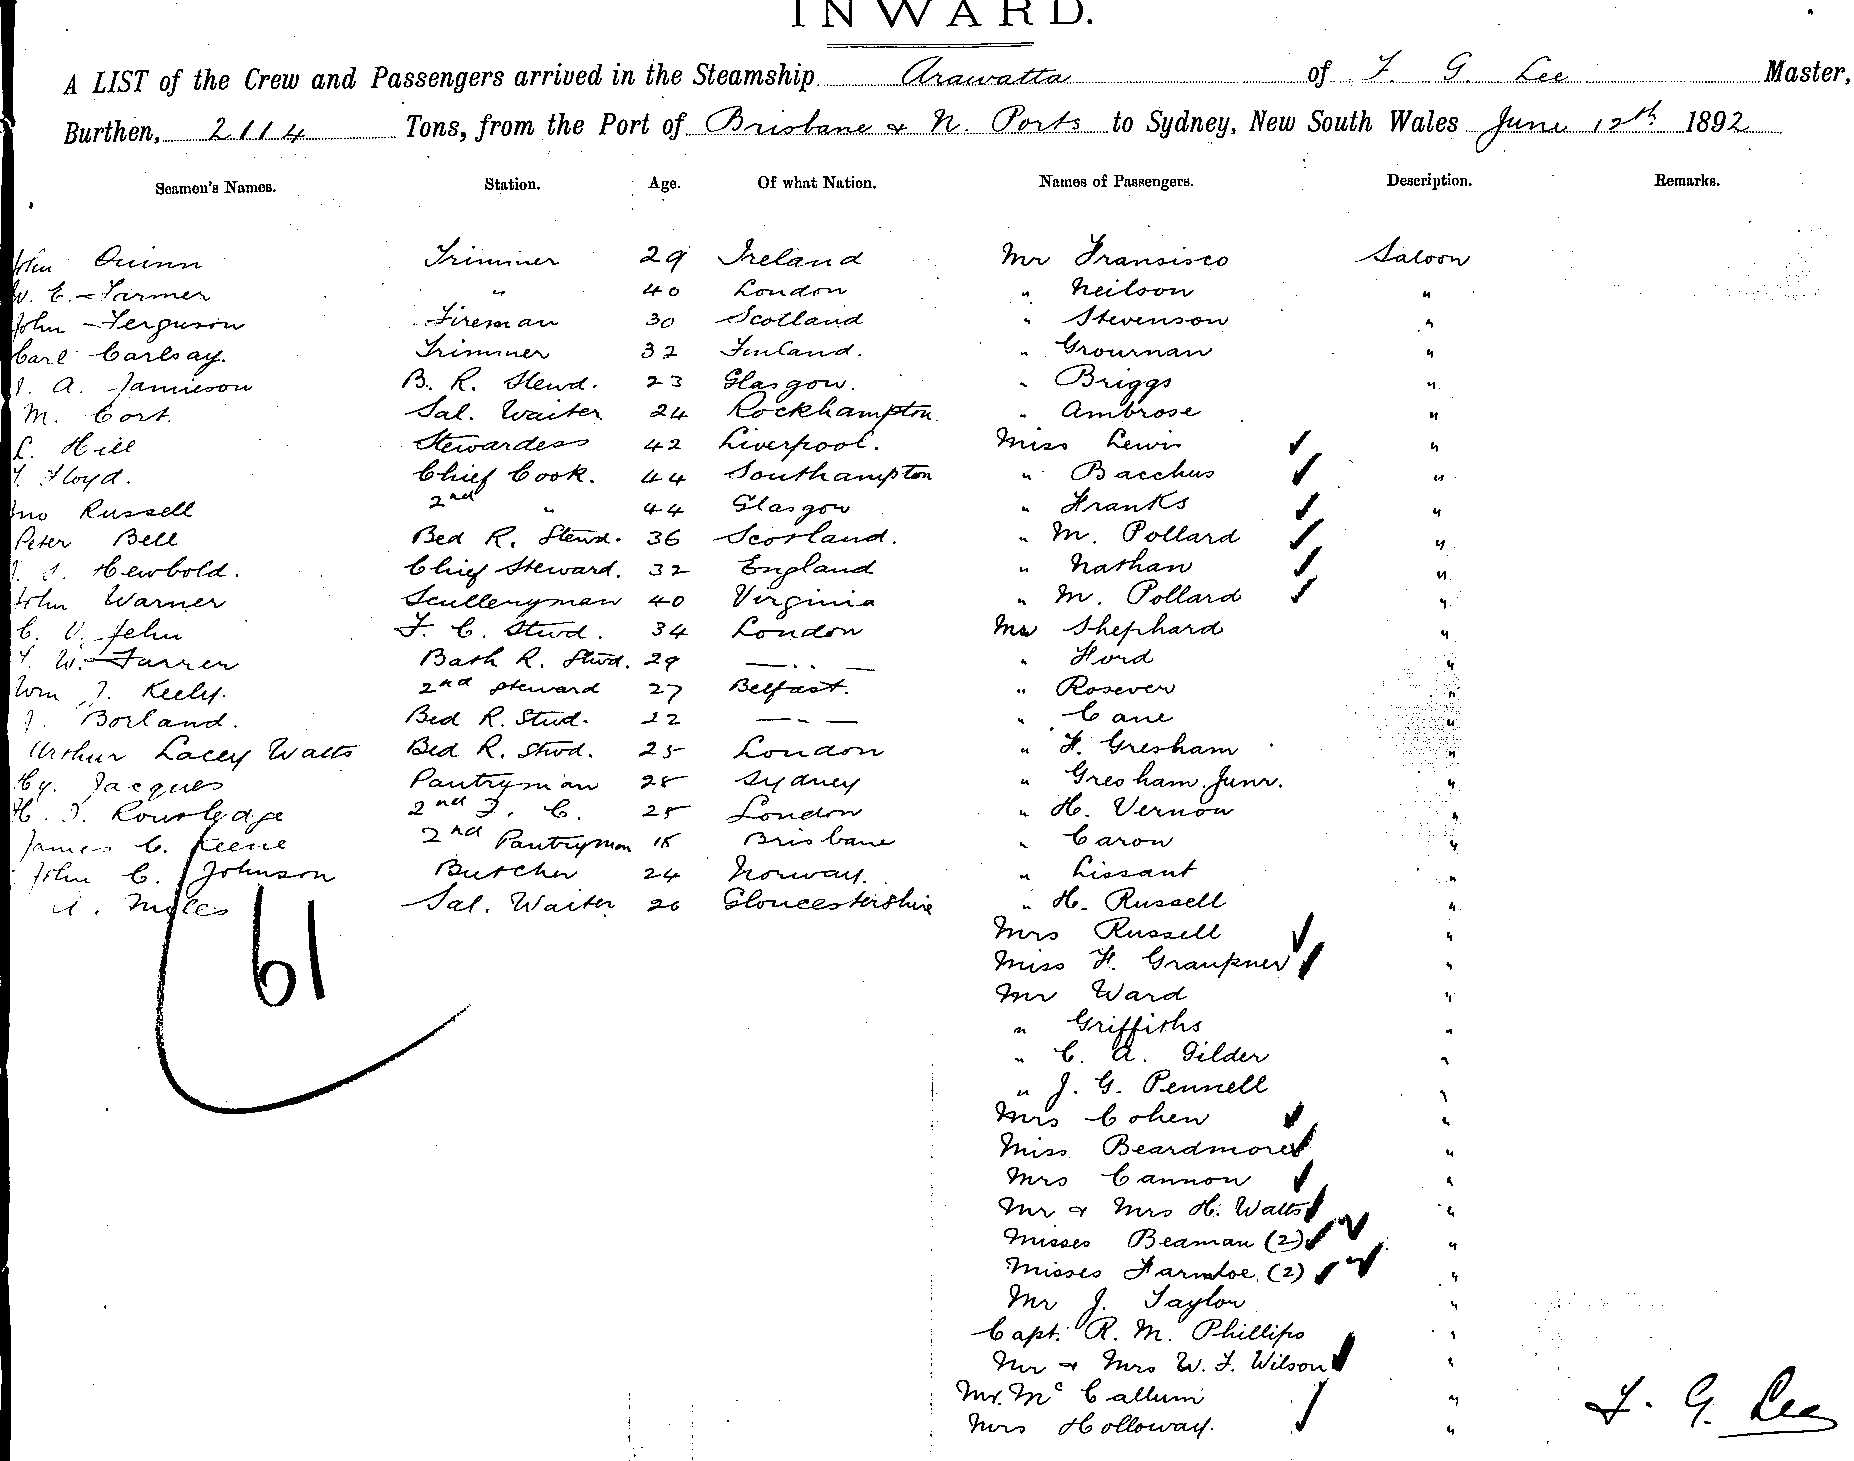 INWARD.
A LIST of the Crew and Passengers arrived in the Steamship Arawatta of F. G. Lee Master,
Burthen, 2114 Tons, from the Port of Brisbane & N. Ports to Sydney, New South Wales June 12th 1892
Seamen's Names. Station. Age. Of what Nation. Names of Passengers. Description. Remarks.
John Quinn Trimmer 29 Ireland Mr Fransisco Saloon
W. C. Farmer " 40 London " Neilson "
John Ferguson Fireman 30 Scotland " Stevenson "
Carl Carlsay. Trimmer 32 Finland. " Grournan "
J. A. Jamieson B. R. Stewd. 23 Glasgow. " Briggs "
M. Cort. Sal. Waiter 24 Rockhampton " Ambrose "
L. Hill Stewardess 42 Liverpool. Miss Lewis "
Floyd. Chief Cook. 44 Southampton " Bacchus "
Jno Russell 2nd " 44 Glasgow " Franks "
Peter Bell Bed R. Stewd. 36 Scotland. " M. Pollard "
Hewbold. Chief Steward. 32 England " Nathan "
John Warner Sculleryman 40 Virginia " M. Pollard "
C. V. Jehu F. C. Stwd. 34 London Mr Shephard "
W. Farrer Bath R. Stwd. 29 — " — " Ford "
Wm J. Keely. 2nd Steward 27 Belfast. " Rosever "
J. Borland. Bed R. Stwd. 22 — " — " Cane "
Arthur Lacey Watts Bed R. Stwd. 25 London " F. Gresham "
Hy. Jacques Pantryman 28 Sydney " Gresham Junr. "
H. J. Routledge 2nd F. C. 25 London " H. Vernon "
James C. Keene 2nd Pantryman 18 Brisbane " Caron "
John C. Johnson Butcher 24 Norway. " Lissant "
A. Myles Sal. Waiter 20 Gloucestershire " H. Russell "
61
Mrs Russell "
Miss F. Graupner "
Mr Ward "
" Griffiths "
" C. A. Gilder "
" J. G. Pennell "
Mrs Cohen "
Miss Beardmore "
Mrs Cannon "
Mr & Mrs H. Watts "
Misses Beaman (2) "
Misses Farmloe (2) "
Mr J. Taylor "
Capt. R. M. Phillips "
Mr & Mrs W. F. Wilson "
Mr. Mc Callum "
Mrs Holloway. "
F. G. Lee